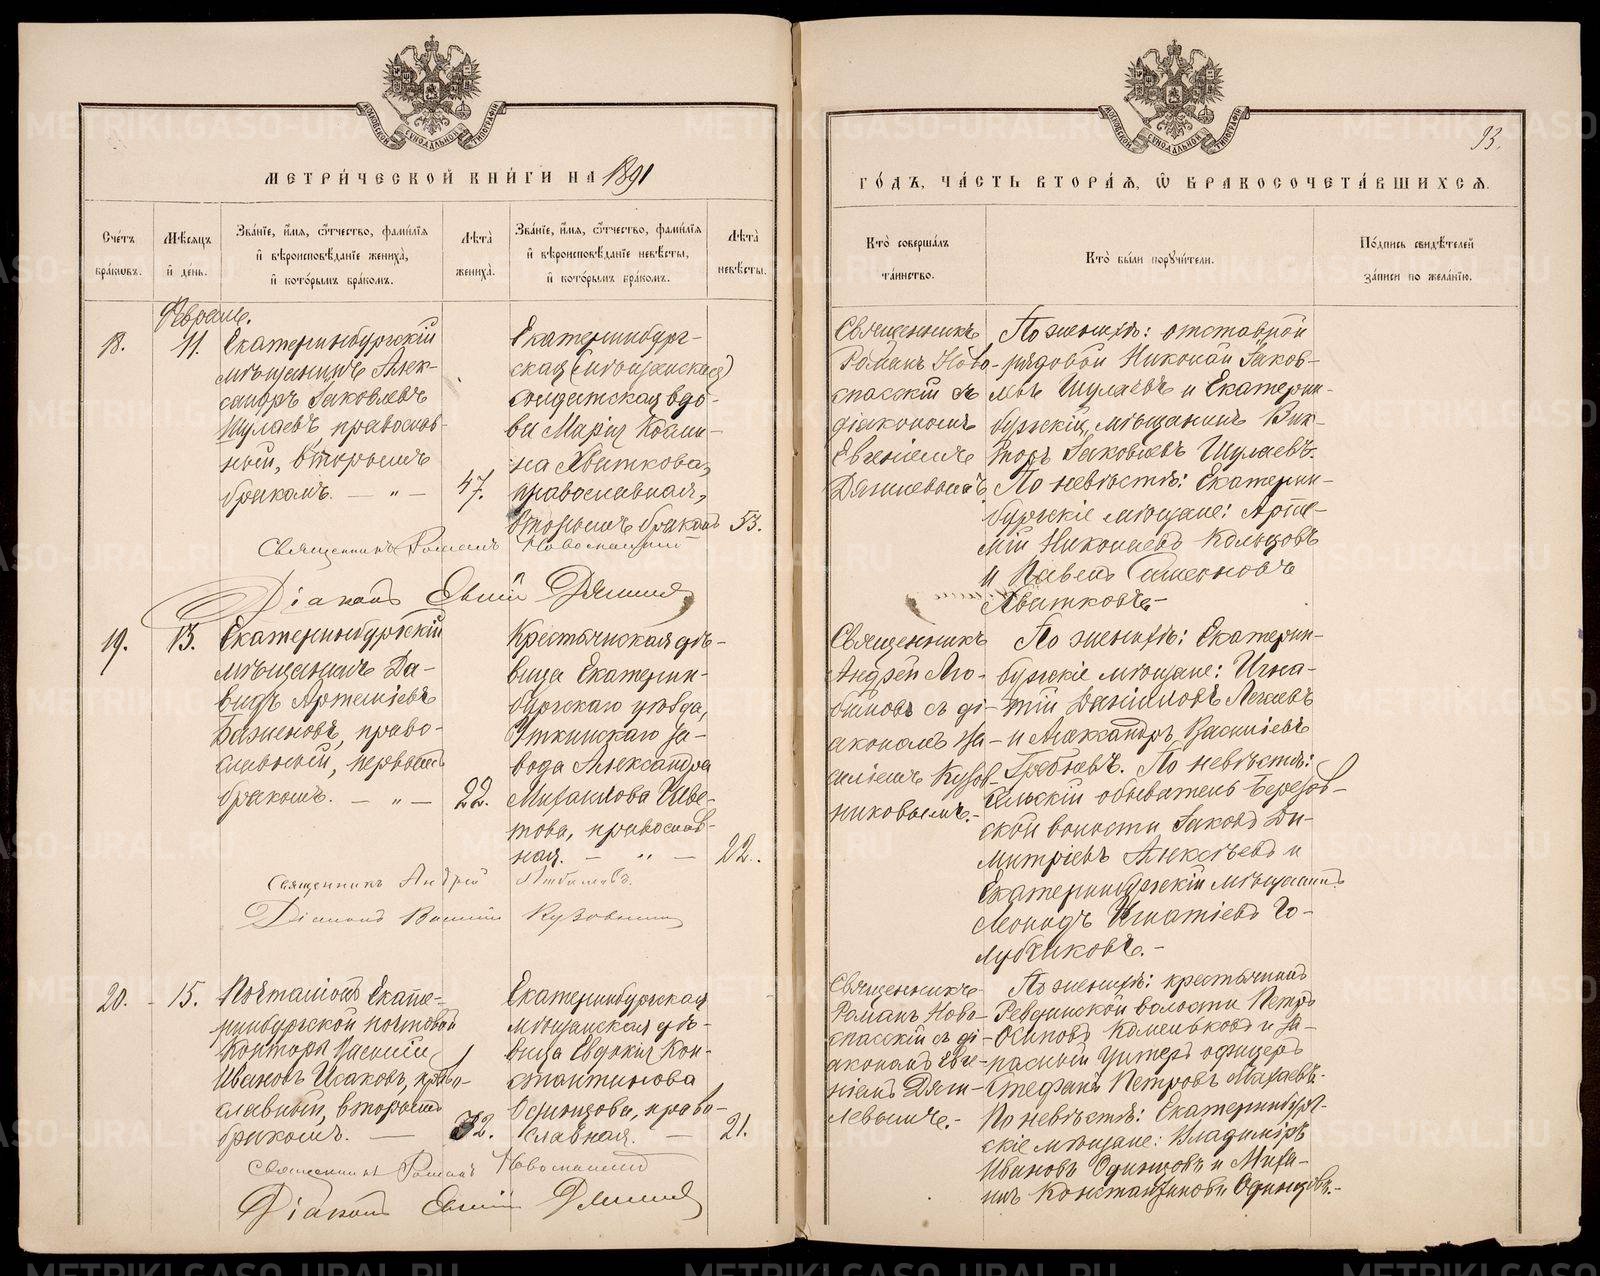 МОСКОВСКОЙ СѴНОДАЛЬНОЙ ТИПОГРАФІИ
МЕТРИ́ЧЕСКОЙ КНИ́ГИ НА 1891
Счéтъ бráковъ.
Мѣ́сяцъ и҆ дéнь.
Звáнїе, и҆́мя, ѻ҆́тчество, фамíлїя
и҆ вѣроисповѣ́данїе женихá,
и҆ котóрымъ брáкомъ.
Лѣтà женихà.
Звáнїе, и҆́мя, ѻ҆́тчество, фамíлїя
и҆ вѣроисповѣ́данїе невѣ́сты,
и҆ котóрымъ брáкомъ.
Лѣтà невѣ́сты.
Февраль.
18.
11.
Екатеринбургскій
мѣщанинъ Алек-
сандръ Яковлевъ
Шулаевъ православ-
ный, вторымъ
бракомъ. — „ —
47.
Екатеринбург-
ская (мѣщанская)
солдатская вдо-
ва Марія Козми-
на Хвиткова,
православная,
вторымъ бракомъ
53.
Священникъ Романъ Новоспасскій
Діаконъ Евгеній Дягилевъ
19.
13.
Екатеринбургскій
мѣщанинъ Да-
видъ Артеміевъ
Баженовъ, право-
славный, первымъ
бракомъ. — „ —
22.
Крестьянская дѣ-
вица Екатерин-
бургскаго уѣзда,
Уткинскаго за-
вода Александра
Михаилова Цве-
това, православ-
ная. — „ —
22.
Священникъ Андрей Любимовъ.
Діаконъ Василій Кузовниковъ
20.
15.
Почталіонъ Екате-
ринбургской почтовой
Конторы Василій
Ивановъ Исаковъ, право-
славный, вторымъ
бракомъ. —
32.
Екатеринбургская
мѣщанская дѣ-
вица Евдокія Кон-
стантинова
Одинцова, право-
славная. —
21.
Священникъ Романъ Новоспасскій
Діаконъ Евгеній Дягилевъ
МОСКОВСКОЙ СѴНОДАЛЬНОЙ ТИПОГРАФІИ
93.
ГО́ДЪ, ЧА́СТЬ ВТОРА́Я, Ѽ БРАКОСОЧЕТА́ВШИХСЯ.
Ктò совершáлъ
тáинство.
Ктò бы́ли порꙋчи́тели.
Пóдпись свидѣ́телей
зáписи по желáнїю.
Священникъ
Романъ Ново-
спасскій съ
діакономъ
Евгеніемъ
Дягилевымъ
По женихѣ: отставной
рядовой Николай Яков-
левъ Шулаевъ и Екатерин-
бургскій мѣщанинъ Вик-
торъ Яковлевъ Шулаевъ.
По невѣстѣ: Екатерин-
бургскіе мѣщане: Арте-
мій Николаевъ Кольцовъ
и Павелъ Симеоновъ
Хвитковъ.—
Священникъ
Андрей Лю-
бимовъ съ ді-
акономъ Ва-
силіемъ Кузов-
никовымъ.-
По женихѣ: Екатерин-
бургскіе мѣщане: Игна-
тій Даніиловъ Лекаевъ
и Александръ Василіевъ
Гребневъ. По невѣстѣ:
Сельскій обыватель Березов-
ской волости Яковъ Ди-
митріевъ Алексѣевъ и
Екатеринбургскій мѣщанинъ
Леонидъ Игнатіевъ Го-
лубчиковъ.-
Священникъ
Романъ Ново-
спасскій съ ді-
акономъ Евге-
ніемъ Дяги-
левымъ.-
По женихѣ: крестьянинъ
Ревдинской волости Петръ
Осиповъ Коменьковъ и За-
пасный Унтеръ офицеръ
Стефанъ Петровъ Махаевъ.
По невѣстѣ: Екатеринбург-
скіе мѣщане: Владиміръ
Ивановъ Одинцовъ и Миха-
илъ Константиновъ Одинцовъ.-
METRIKI.GASO-URAL.RU